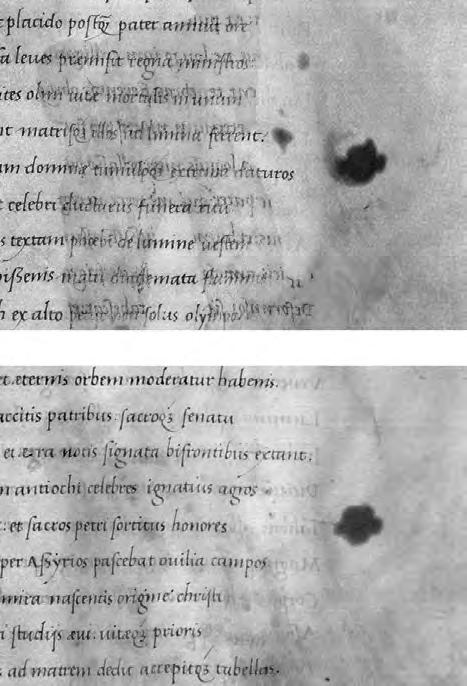 placido postqȝ pater annuit ore
leues premisit regna ministros
olim uite mortalis in unum
matrisqȝ ad lumina ferrent.
domine tumuloqȝ extrema daturos
celebri ducturus funera
textam phoebi de lumine uestem
diademata
ex alto solus olympo
eternis orbem moderatur habenis.
accitis patribus sacroqȝ senatu
et notis signata bifrontibus extant:
antiochi celebres ignatius agros
et sacros petri sortitus honores
per Assyrios pascebat ouilia campos
nascentis origine christi
studijs aui: uiteqȝ prioris
ad matrem dedit acceptqȝ tabellas.